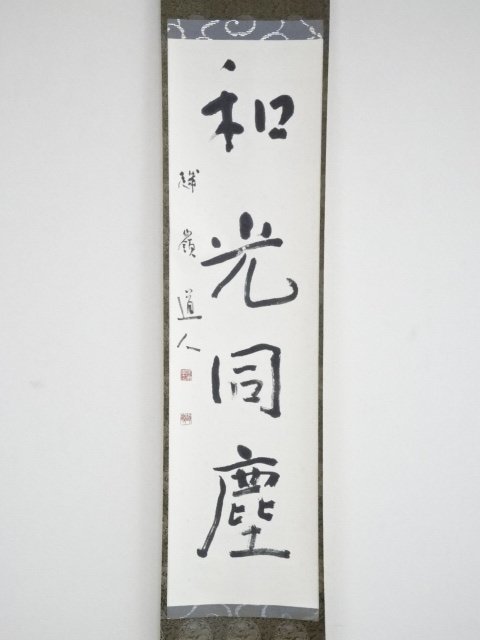 和光同塵
嶺道人